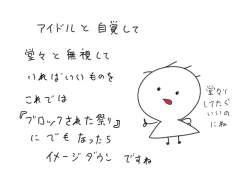 アイドルと自覚して
堂々と無視して
いればいいものを
これでは
『ブロックされた祭り』
にでもなったら
イメージダウンですね
堂々と
してたら
いいの
にね